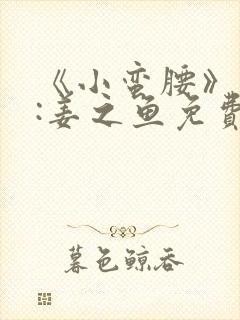 《小蛮腰》
:姜之鱼免費
暮色鲸吞